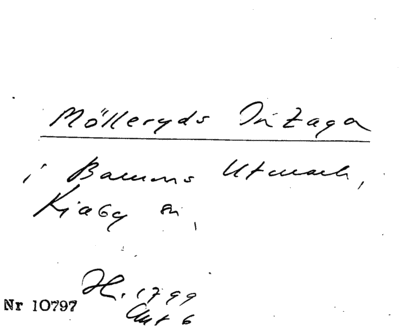 Mölleryds Intaga
i Barums Utmark,
Kiaby sn,
H. 1799
Akt 6
Nr 10797